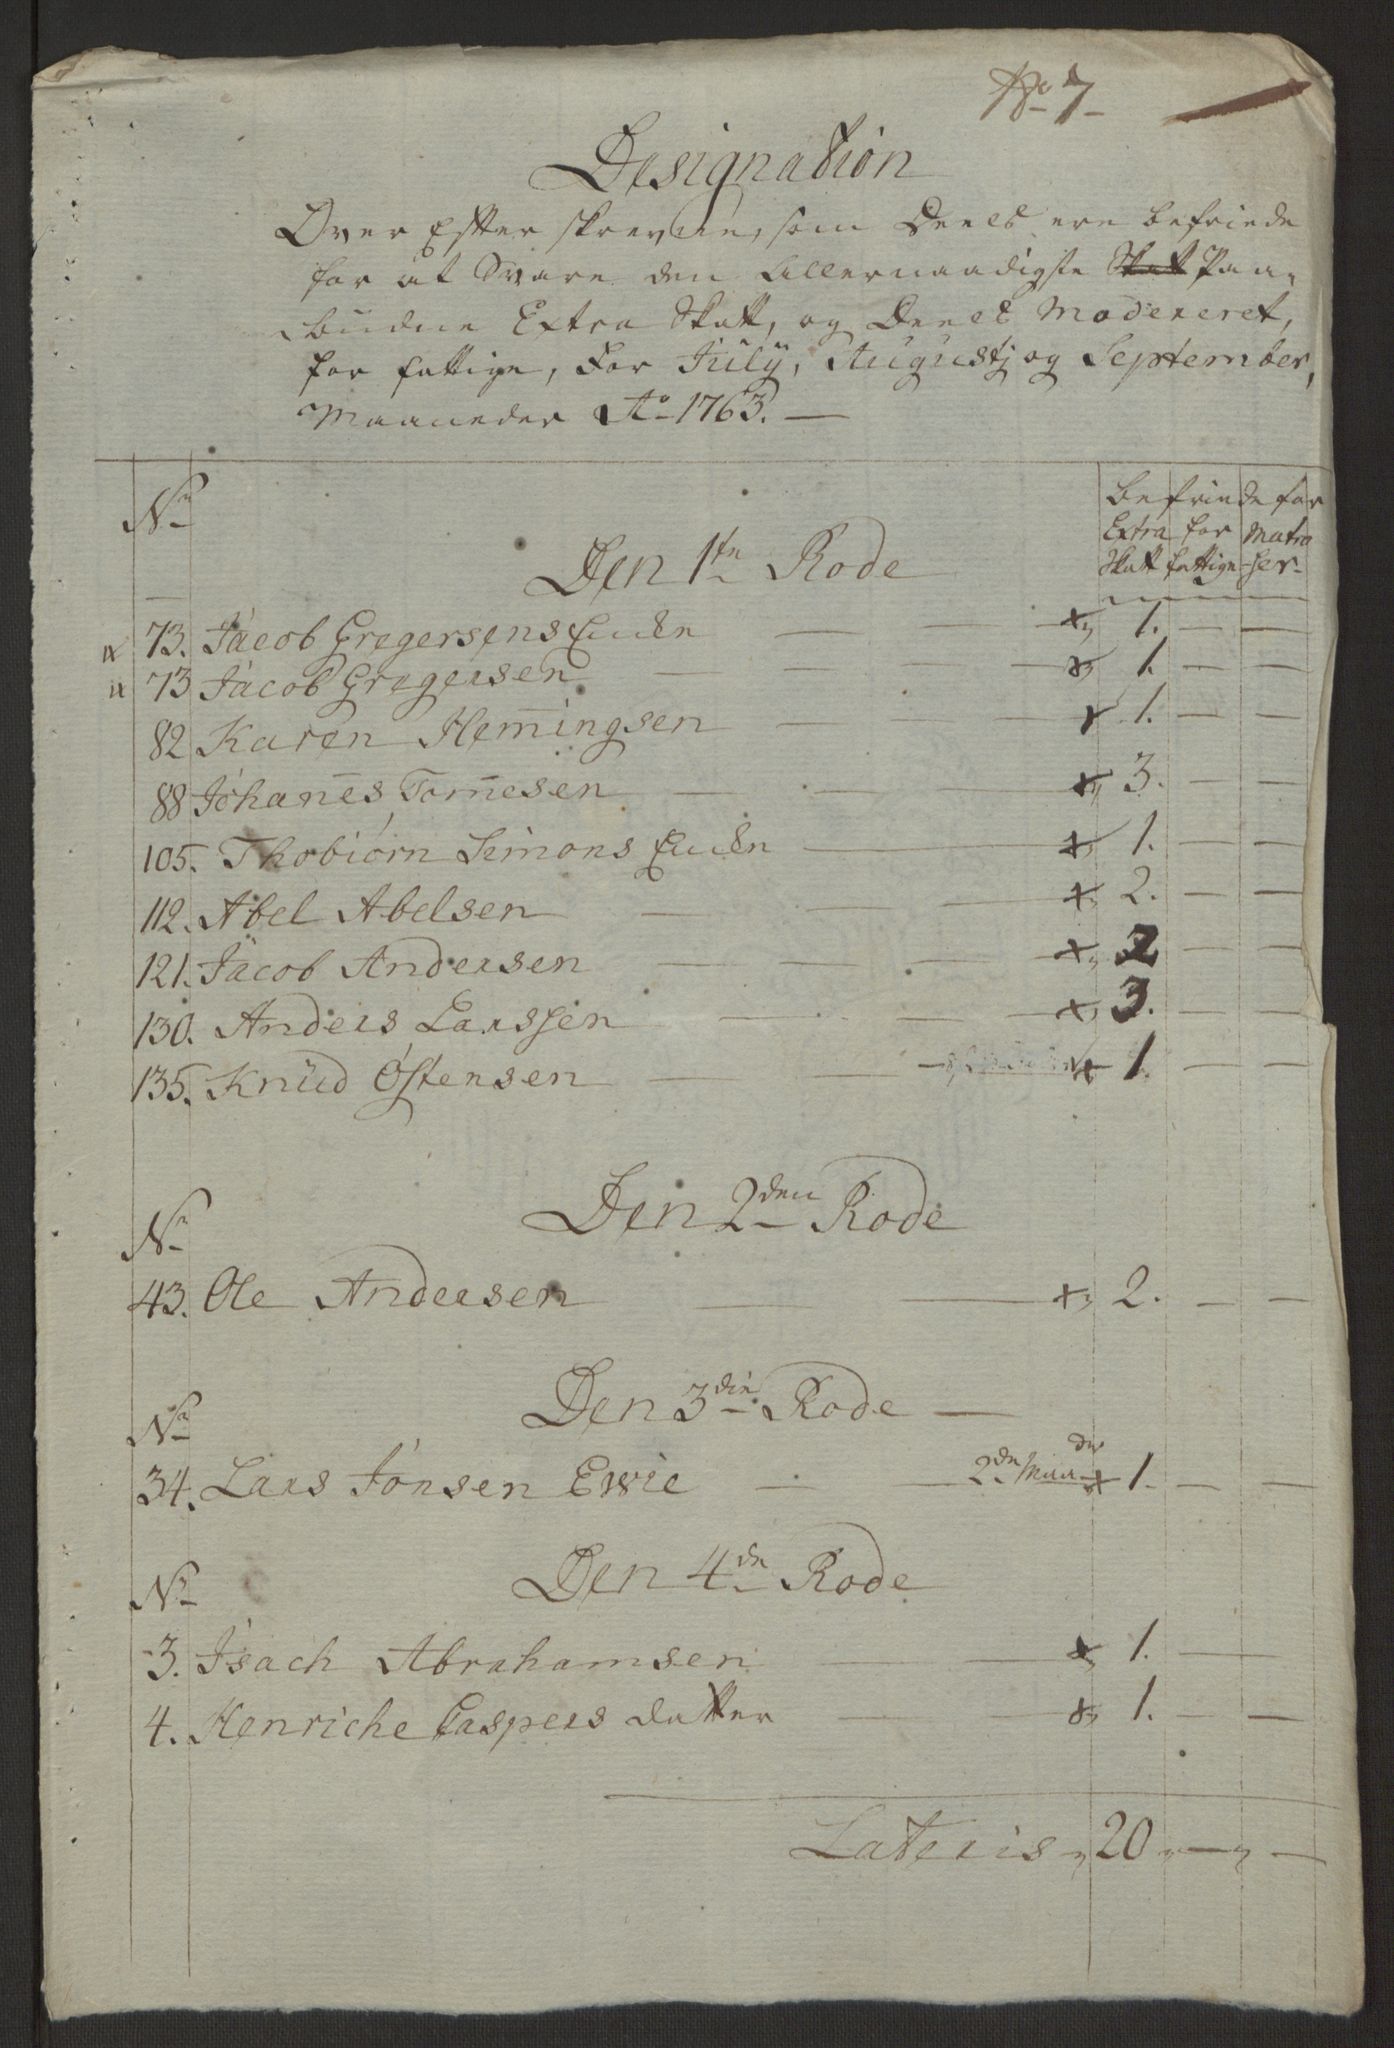 No 7
Designation
Over Efter skrevne, som Deels ere befriede
for at Svare den Allernaadigste Skatt Paa-
budne Extra Skatt, og Deels Modereret,
for fattige, For July, Augustj og September,
Maaneder Ao 1763.
Nr
befriede for
Extra for Matro
Skatt fattige ser
Den 1te Rode
73. Jacob Gregersens Encke 1. — —
73 Jacob Gregersen 1. — —
82 Karen Hem̅ingsen 1. — —
88 Johan̅es Tom̅esen 3. — —
105. Thobiørn Simons Encke 1. — —
112. Abel Abelsen 2. — —
121. Jacob Andersen 2 — —
130. Anders Larssen 3. — —
135. Knud Østensen 1. — —
Den 2den Rode
Nr
43. Ole Andersen 2. — —
Den 3die Rode
Nr
34. Lars Jonsen Ewie 2de Maander 1. — —
Den 4de Rode
Nr
3. Isach Abrahamsen 1. — —
4. Henriche Caspers datter 1. — —
Lateris 20 — —